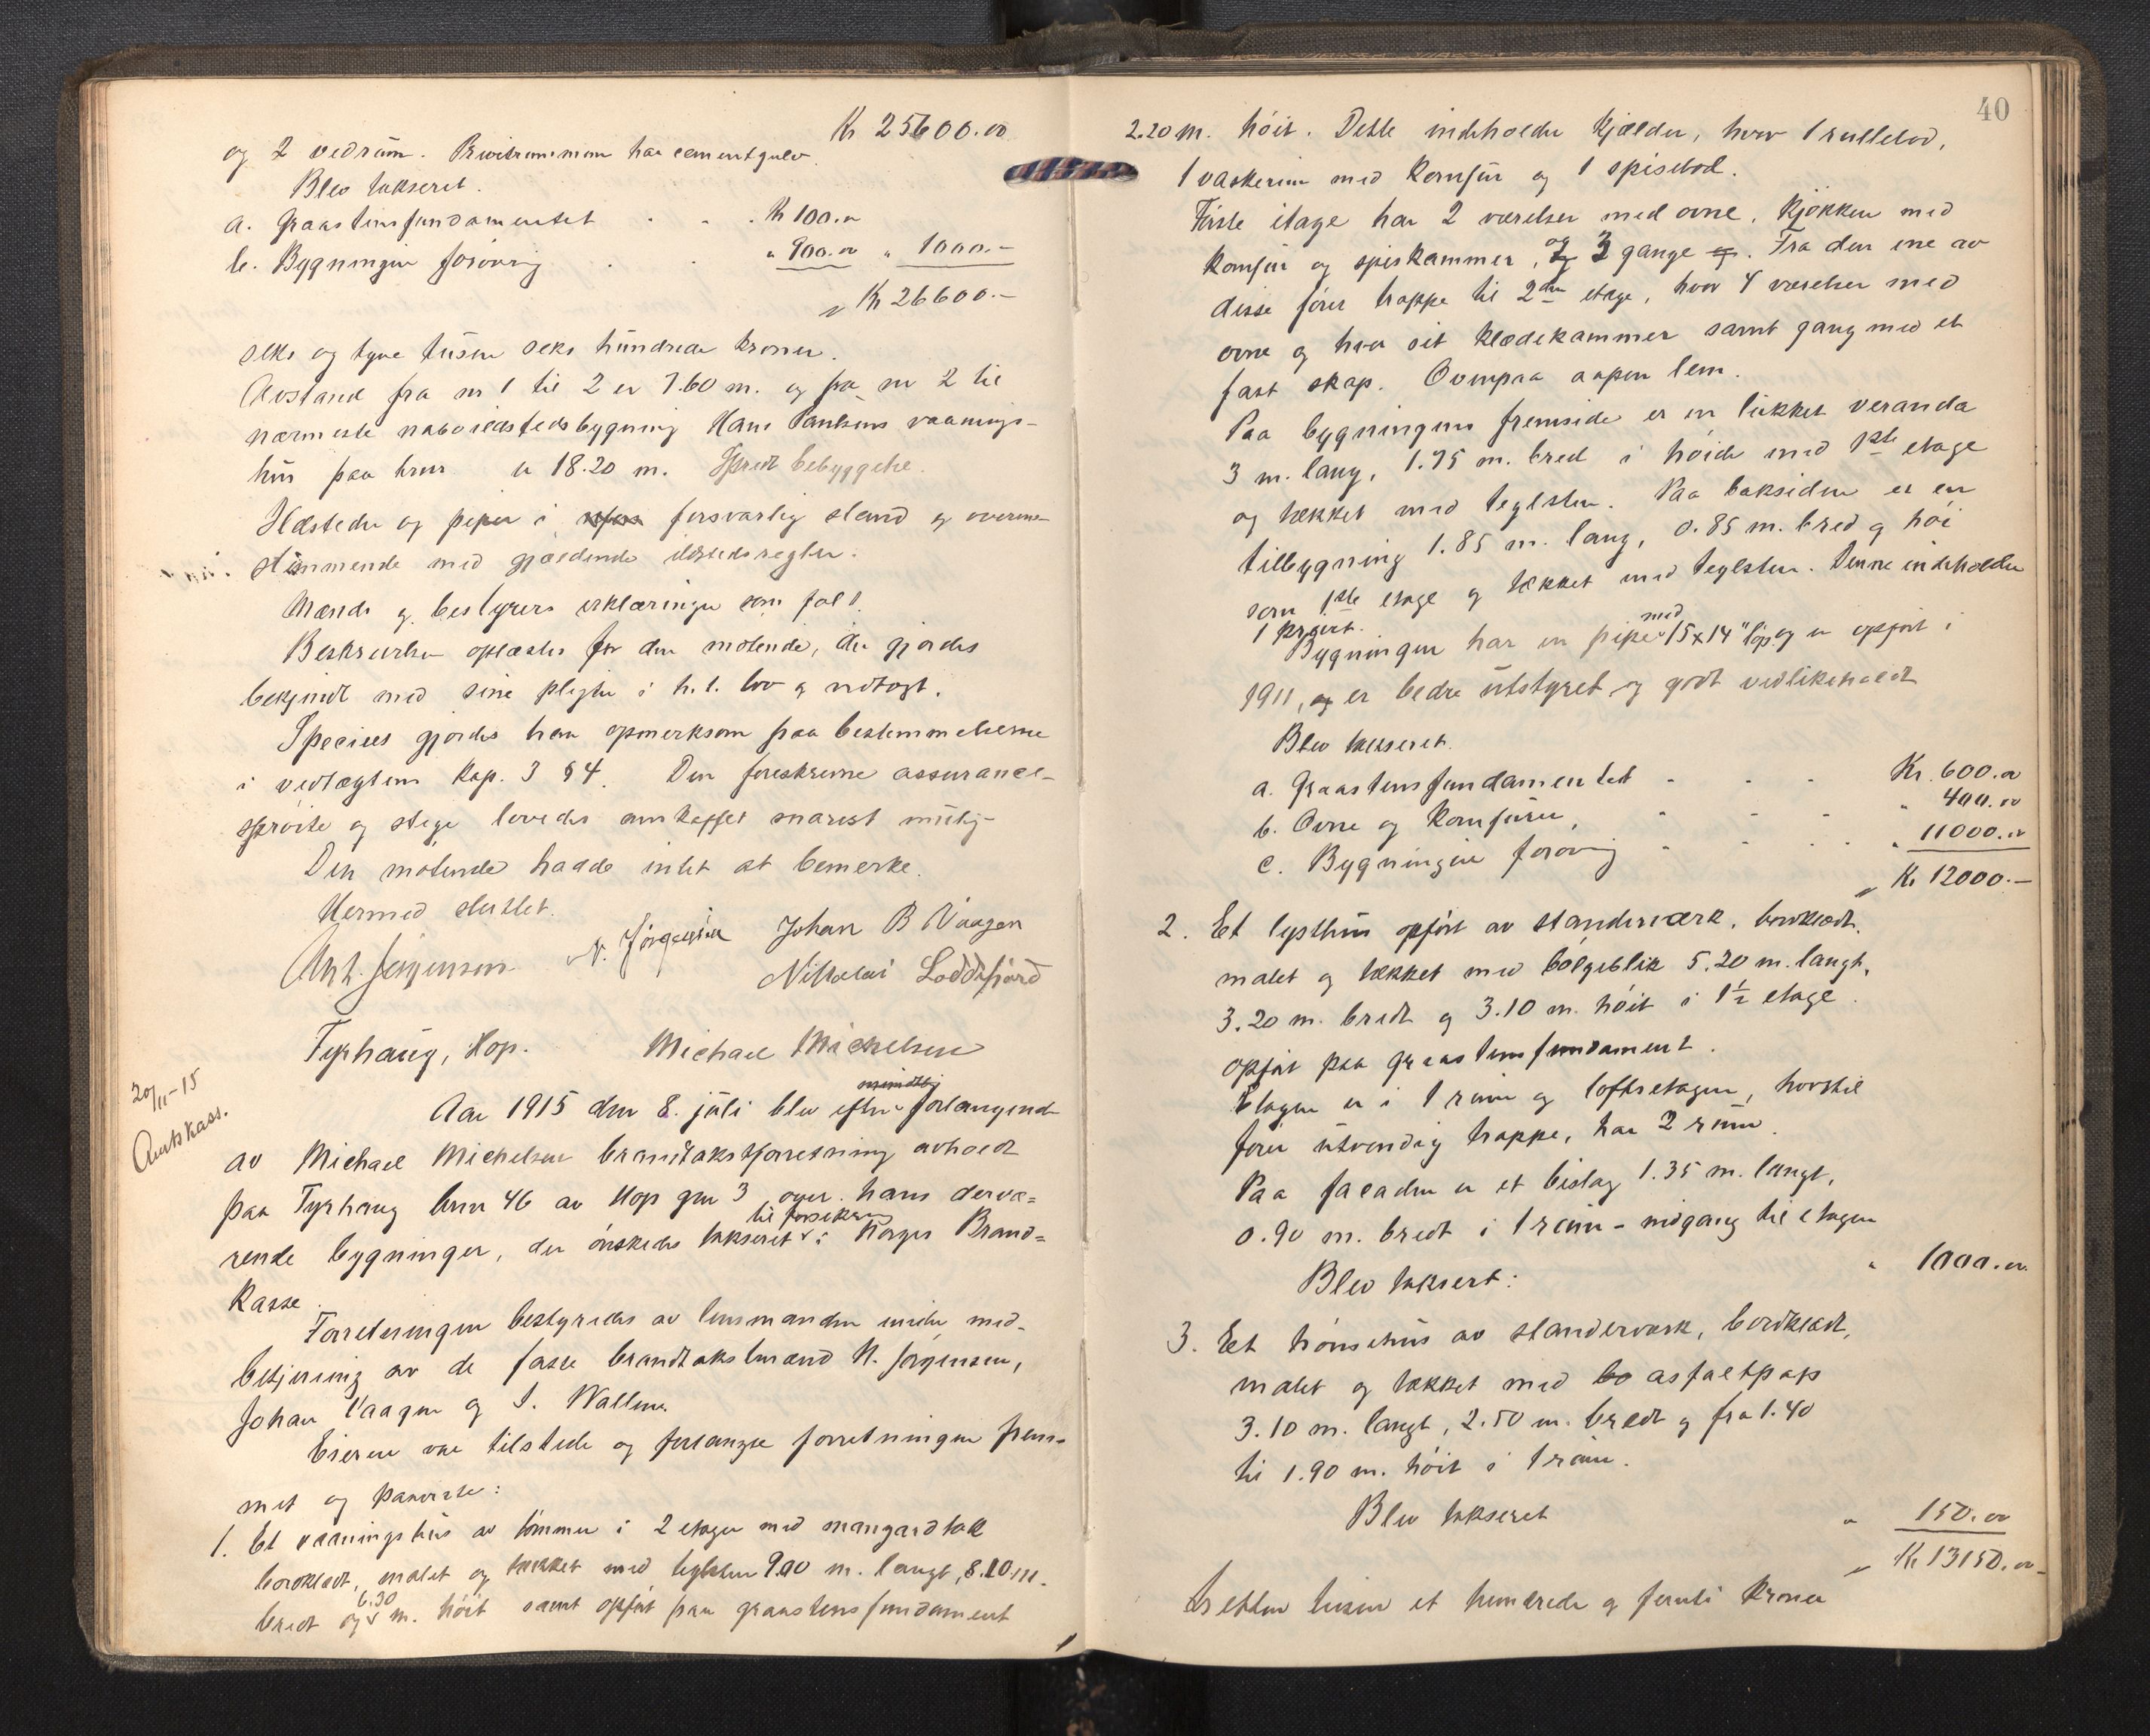 Kr 25600.00
og 2 vedrum. Privetrummene har cementgulv.
Blev takseret.
a. Graastensfundamentet . . . Kr 100.00
b. Bygningen forøvrig . . " 900.00 " 1000.-
Kr 26600.-
seks og tyve tusen seks hundrede kroner.
Avstand fra nr 1 til 2 er 7.60 m. og fra nr 2 til
nærmeste naboildstedsbygning Hans Paulsens vaanings-
hus paa er 18.20 m. Spredt bebyggelse.
Ildsteder og piper i forsvarlig stand og overens-
stemmende med gjældende ildstedsregler.
Mænds og bestyrers erklæringer som fol 1.
Beskrivelsen oplæstes for den møtende, der gjordes
bekjendt med sine pligter i h.t. lov og vedtægt.
Specielt gjordes han opmerksom paa bestemmelserne
i vedtægtens Kap. 3 § 4. Den foreskrevne assurance-
sprøite og stige lovedes anskaffet snarest mulig
Den møtende hadde intet at bemerke.
Hermed sluttet.
Ant. Jørgensen N. Jørgensen Johan B Vaagen
Nikolai Loddefjord
Tyrhaug, Hop. Michael Michelsen
20/11-15
Amtskass.
Aar 1915 den 8. juli blev efter mundtlig forlangende
av Michael Michelsen brandtakstforretning avholdt
paa Tyrhaug brnr 46 av Hop gnr 3 over hans dervæ=
rende bygninger, der ønskedes takseret til forsikring i Norges Brand=
kasse.
Forretningen bestyredes av lensmanden under med-
betjening av de faste brandtakstmænd N. Jørgensen,
Johan Vaagen og S. Wallem.
Eieren var tilstede og forlangte forretningen frem-
met og paaviste:
1. Et vaaningshus av tømmer i 2 etager med mangardtak
bordklædt, malet og tækket med teglsten 9.00 m. langt, 8.10 m.
bredt og 6.30 m. høit samt opført paa graastensfundament
40
2.20 m. høit. Dette indeholder kjælder, hvor 1 rullebod,
1 vaskerum med komfur og 1 spisebod.
Første etage har 2 værelser med ovne, kjøkken med
komfur og spiskammer, og 3 gange. Fra den ene av
disse fører trappe til 2den etage, hvor 4 værelser med
ovne og hver sit klædekammer samt gang med et
fast skap. Ovenpaa aapen lem.
Paa bygningens fremside er en lukket veranda
3 m. lang, 1.75 m. bred i høide med 1ste etage
og tækket med teglsten. Paa baksiden er en
tilbygning 1.85 m. lang, 0.85 m. bred og høi
som 1ste etage og tækket med teglsten. Denne indeholder
1 privet.
Bygningen har en pipe med 15x14" løp og er opført i
1911, er bedre utstyret og godt vedlikeholdt
Blev takseret.
a. Graastensfundamentet - - - Kr. 600.00
b. Ovne og komfurer, - - - " 400.00
c. Bygningen forøvrig - - - " 11000.00
Kr 12000.-
2. Et lysthus opført av standerværk, bordklædt,
malet og tækket med bølgeblik 5.20 m. langt,
3.20 m. bredt og 3.10 m. høit i 1½ etage.
opført paa graastensfundament.
Etagen er i 1 rum og loftsetagen, hvortil
fører utvendig trappe, har 2 rum.
Paa facaden er et bislag 1.35 m. langt,
0.90 m. bredt i 1 rum - nedgang til etagen
Blev taksert: " 1000.00
3. Et hønsehus av standerværk, bordklædt,
malet og tækket med bo asfaltpap
3.10 m. langt, 2.50 m. bredt og fra 1.40
til 1.90 m. høit i 1 rum.
Blev takseret " 150.00
Kr 13150.00
tretten tusen et hundrede og femti kroner